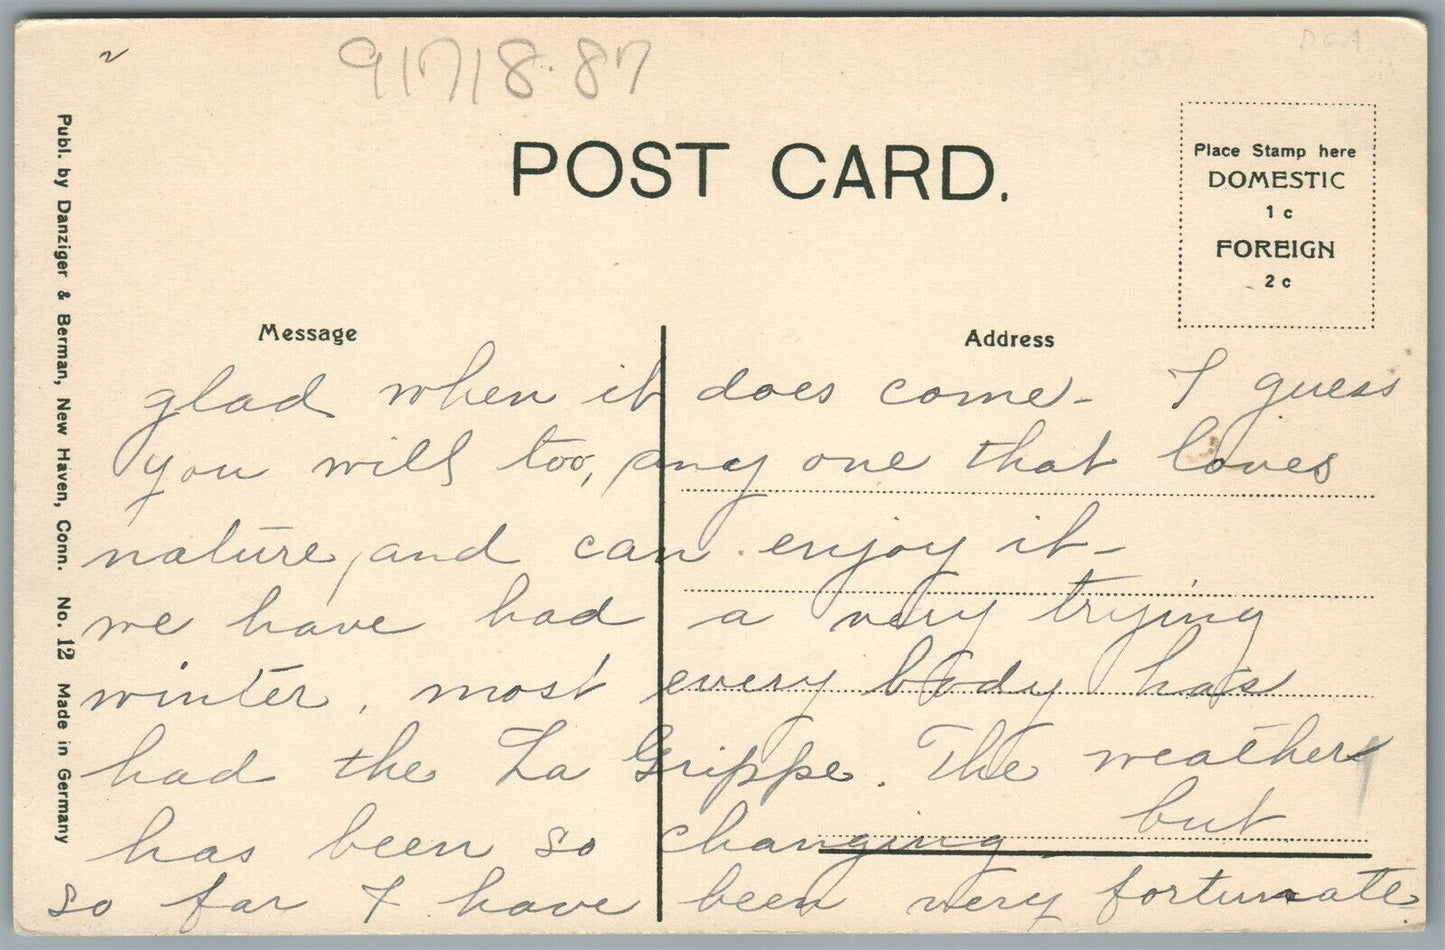 2
91718.87
DGA
POST CARD.
Place Stamp here
DOMESTIC
1 c
FOREIGN
2 c
Message
Address
glad when it does come - I guess
you will too, any one that loves
nature, and can enjoy it -
we have had a very trying
winter, most every body has
had the La Grippe. The weather
has been so changing - but
so far I have been very fortunate
Publ. by Danziger & Berman, New Haven, Conn. No. 12 Made in Germany